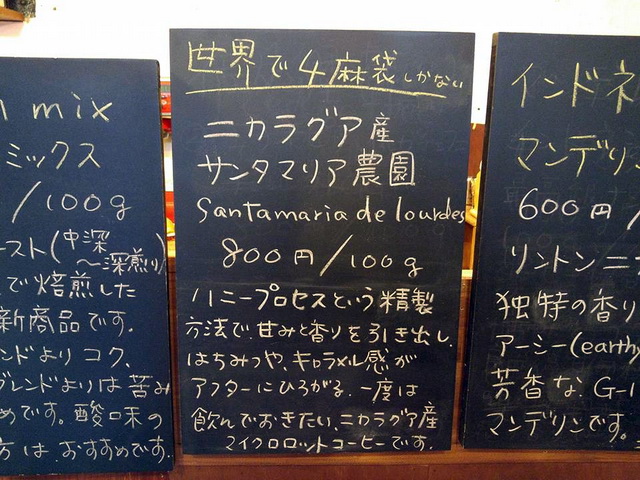 mix
ミックス
/100g
スト(中深
～深煎り)
で焙煎した
新商品です。
ンドよりコク、
ブレンドよりは苦み
めです。酸味の
方はおすすめです。
世界で4麻袋しかない
ニカラグア産
サンタマリア農園
Santamaria de lourdes
800円/100g
ハニープロセスという精製
方法で、甘みと香りを引き出し、
はちみつや、キャラメル感が
アフターにひろがる、一度は
飲んでおきたい、ニカラグア産
マイクロロットコーヒーです。
インドネ
マンデリン
600円/
リントンニ
独特の香り
アーシー(earthy
芳香な、G-1
マンデリンです。